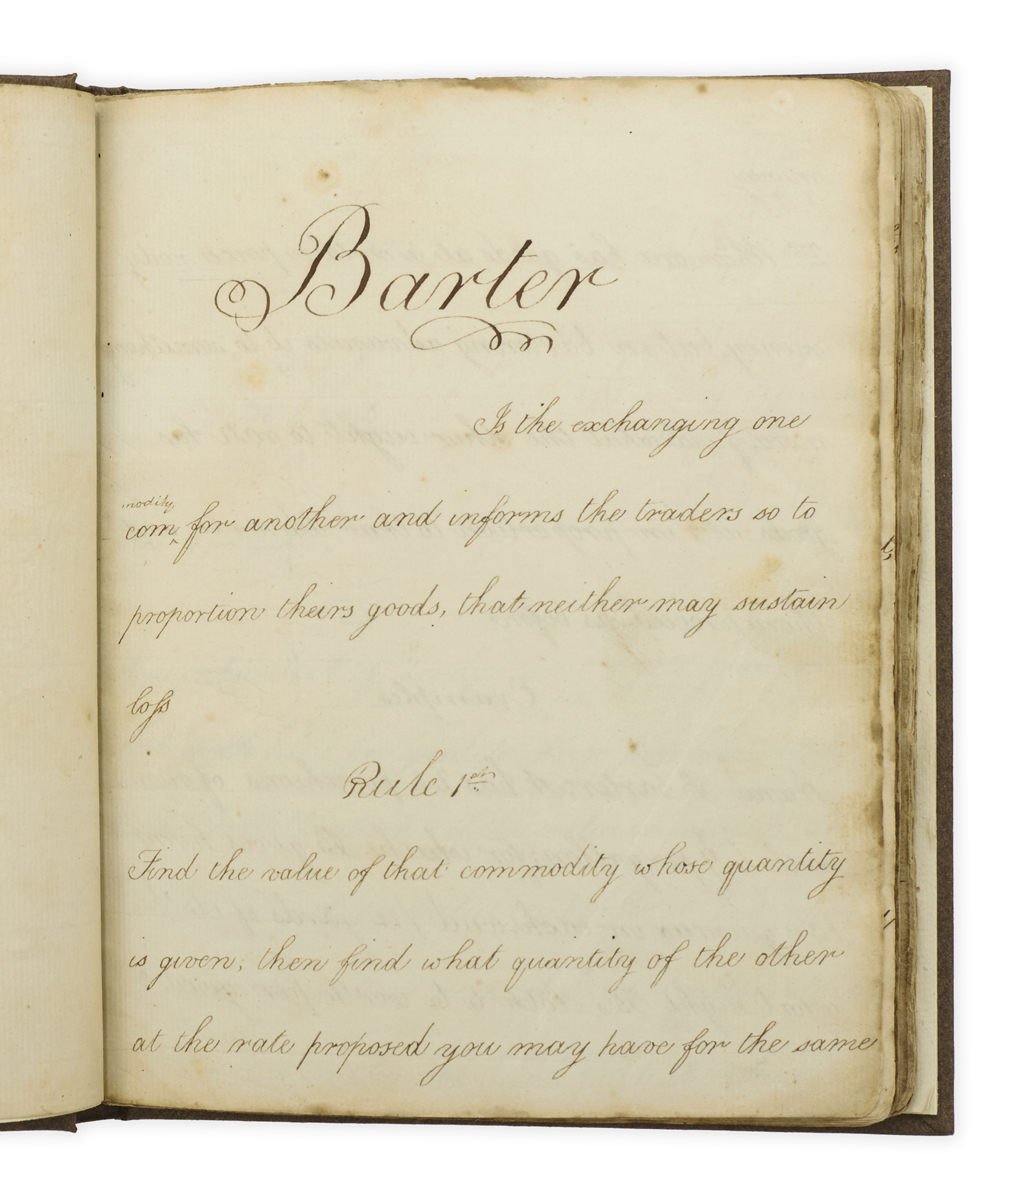 Barter
Is the exchanging one
modity
com‸ for another and informs the traders so to
proportion theirs goods, that neither may sustain
loſs
Rule 1st
Find the value of that commodity whose quantity
is given, then find what quantity of the other
at the rate proposed you may have for the same